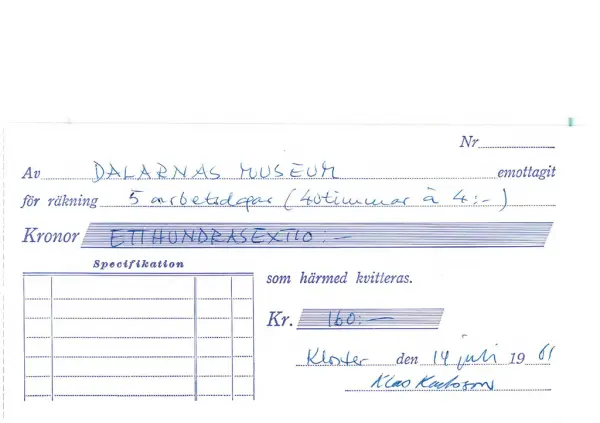 Nr
Av DALARNAS MUSEUM emottagit
för räkning 5 arbetsdagar (40 timmar à 4:-)
Kronor ETTHUNDRASEXTIO:-
Specifikation
som härmed kvitteras.
Kr. 160:-
Kloster den 14 juli 1961
Klas Karlsson